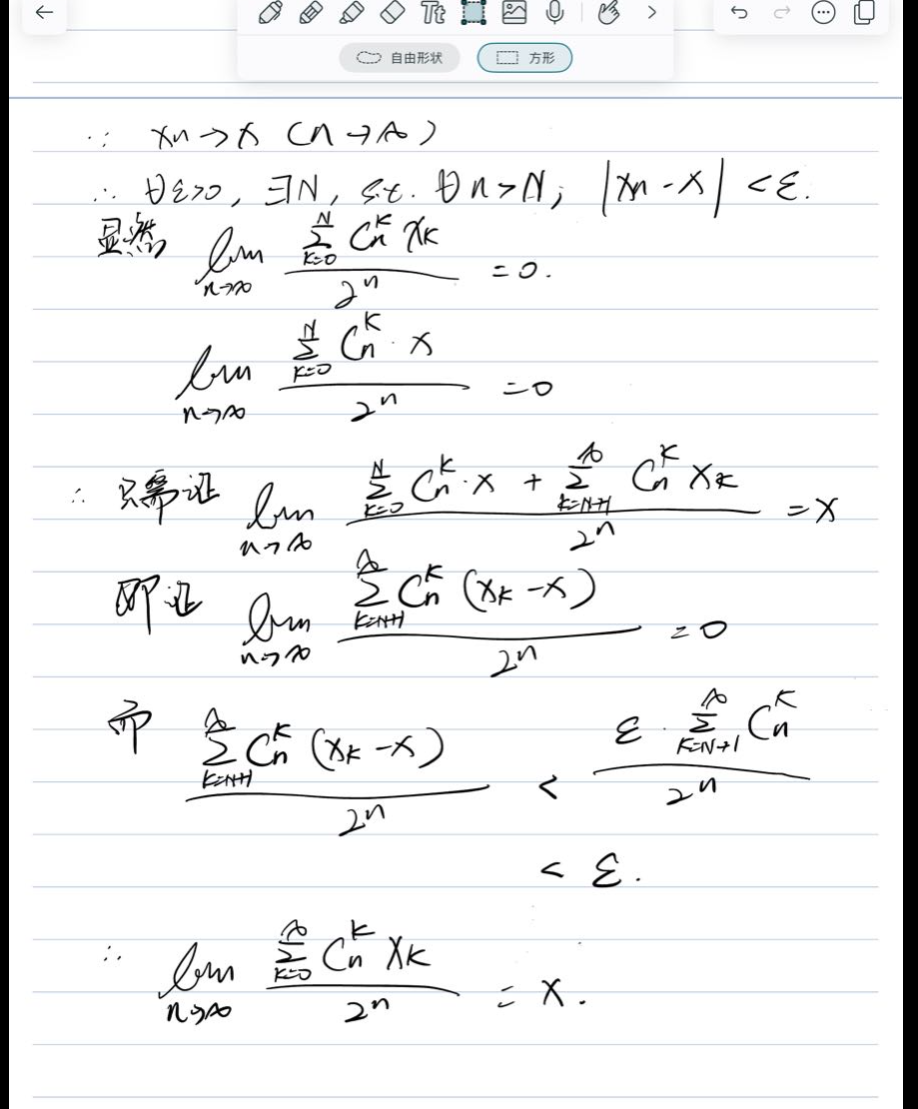 Tt
自由形状 方形
∵ xn→x (n→∞)
∴ ∀ε>0, ∃N, s.t. ∀n>N, |xn-x| <ε.
显然 lim_{n→∞} \frac{\sum_{k=0}^{N} C_n^k x_k}{2^n} =0.
lim_{n→∞} \frac{\sum_{k=0}^{N} C_n^k · x}{2^n} =0
∴ 只需证 lim_{n→∞} \frac{\sum_{k=0}^{N} C_n^k · x + \sum_{k=N+1}^{∞} C_n^k x_k}{2^n} =x
即证 lim_{n→∞} \frac{\sum_{k=N+1}^{∞} C_n^k (x_k -x)}{2^n} =0
而 \frac{\sum_{k=N+1}^{∞} C_n^k (x_k -x)}{2^n} < \frac{ε · \sum_{k=N+1}^{∞} C_n^k}{2^n}
< ε.
∴ lim_{n→∞} \frac{\sum_{k=0}^{∞} C_n^k x_k}{2^n} = x.